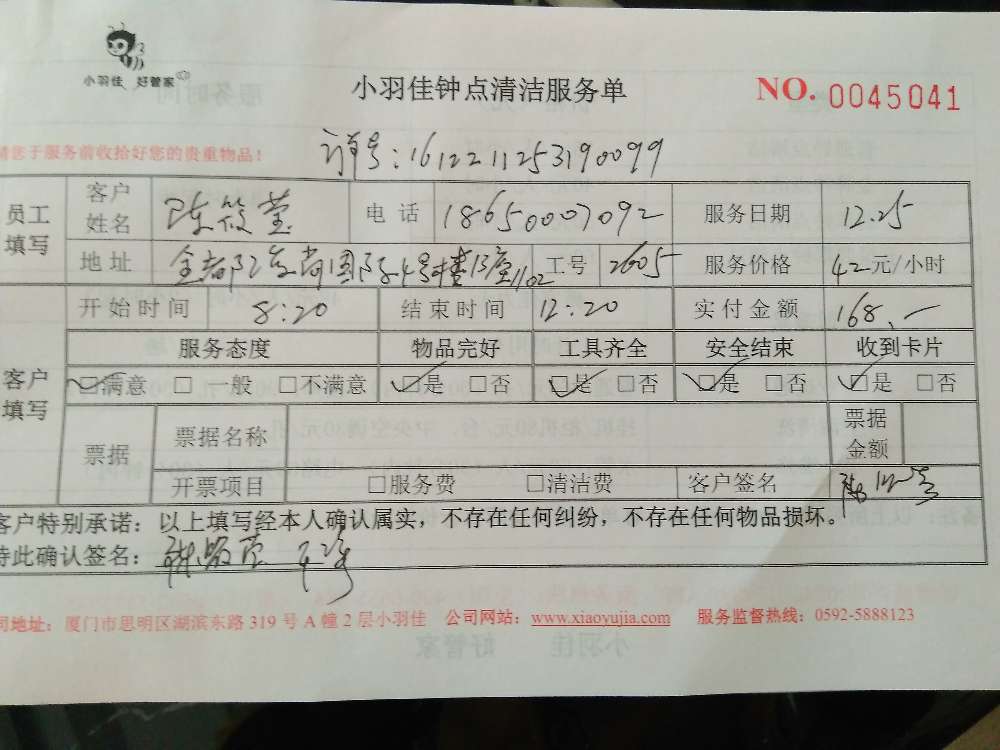 小羽佳 好管家
小羽佳钟点清洁服务单 NO. 0045041
请您于服务前收拾好您的贵重物品！ 订单号：1612211253190099
员工填写 客户姓名 陈筱莹 电话 18650007092 服务日期 12.25
地址 国际4号楼B座1102 工号 2605 服务价格 42元/小时
客户填写 开始时间 8:20 结束时间 12:20 实付金额 168.—
服务态度 物品完好 工具齐全 安全结束 收到卡片
☑满意 □ 一般 □不满意 ☑是 □否 ☑是 □否 ☑是 □否 ☑是 □否
票据 票据名称 票据金额
开票项目 □服务费 □清洁费 客户签名
客户特别承诺：以上填写经本人确认属实，不存在任何纠纷，不存在任何物品损坏。
特此确认签名：
司地址：厦门市思明区湖滨东路 319 号 A 幢 2 层小羽佳 公司网站：www.xiaoyujia.com 服务监督热线：0592-5888123